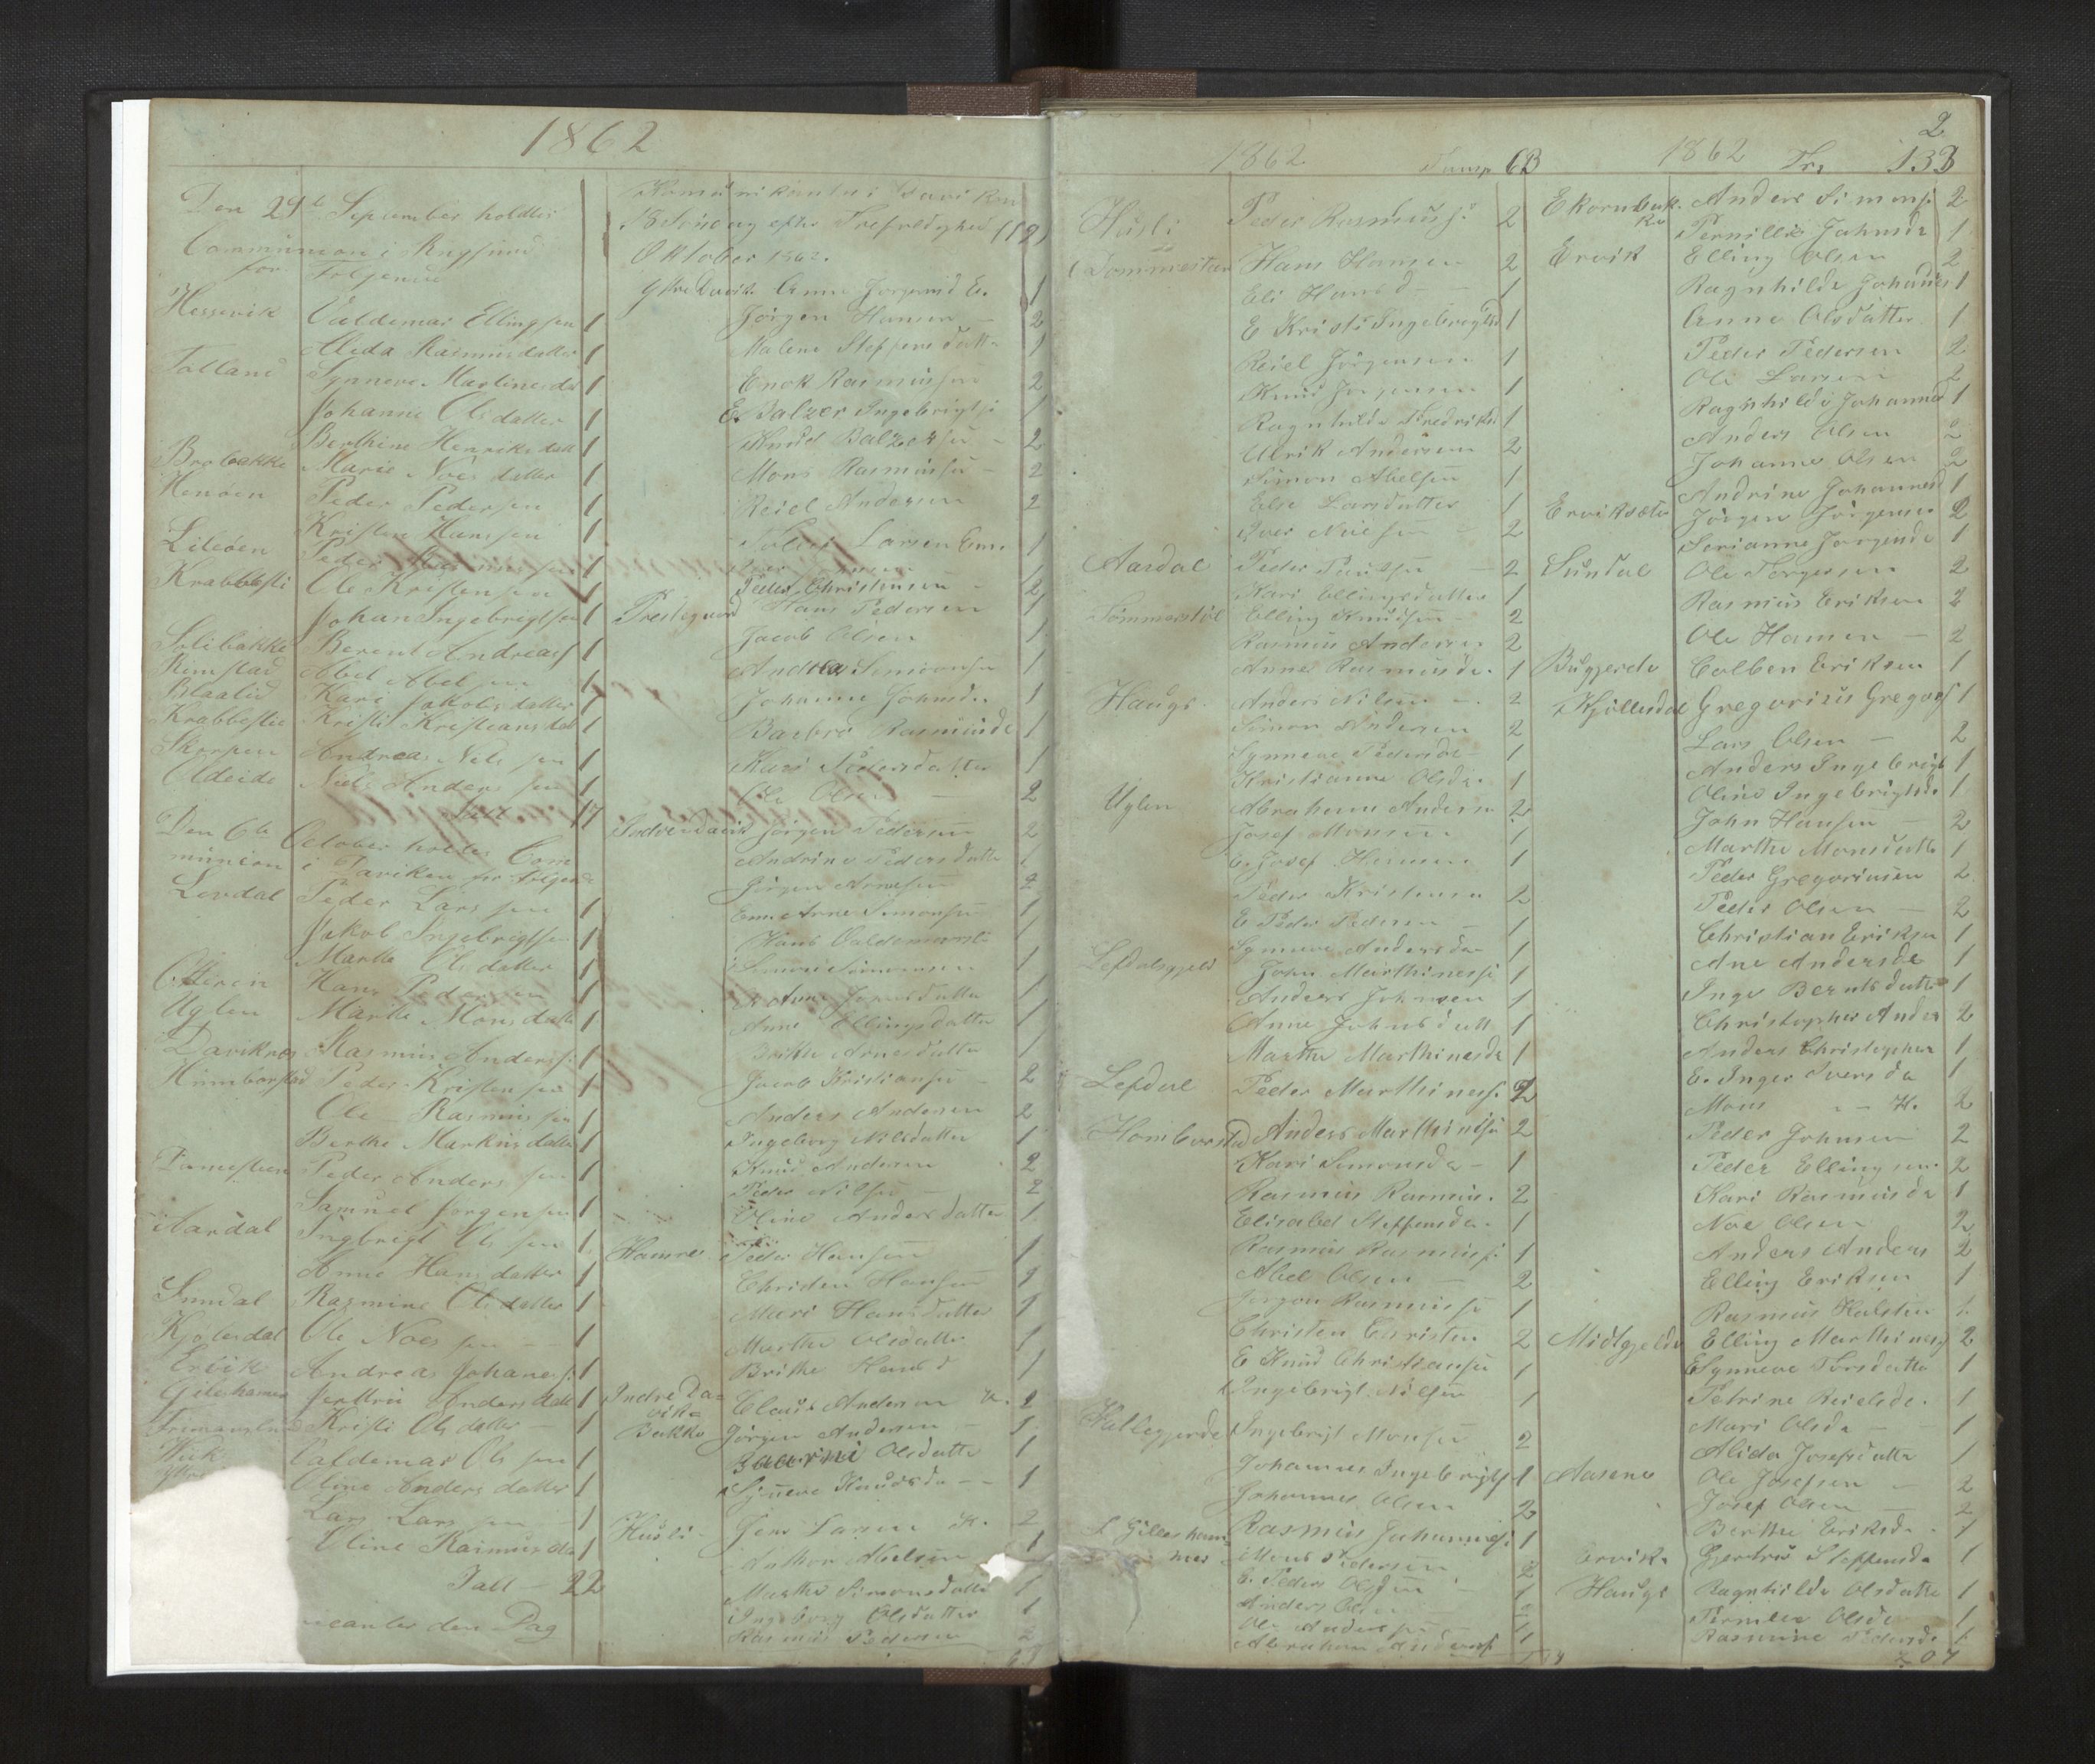 1862
Den 29de September holdtes
Communion i Rugsund
for Følgende
Hessevik Valdemar Ellingsen 1
Alida Rasmusdatter 1
Totland Synneve Martinesdat 1
Johanne Olsdatter 1
Berthine Henriksdatt 1
Brobakke Marie Noesdatter 1
Henøen Peder Pedersen 1
Kristen Hanssen 1
Lileøen Peder 1
Krabbesti Ole Kristensen 1
Johan Ingebrigtsen 1
Solibakke Berent Andreass 1
Rimstad Abel Abelsen 1
Blaalid Kari Jakobsdatter 1
Krabbestie Kristi Kristiansdatt 1
Skorpen Andreas Nelssen 1
Oldeide Niels Anderssen 1
17
Den 6te October holtes Com
munion i Daviken for følgende
Levdal Peder Larssen 1
Jakob Ingebrigtsen 1
Marthe Olsdatter 1
Otteren Hans Pedersen 1
Uglen Marthe Monsdatter 1
Daviknes Rasmus Anderss. 1
Humborstad Peder Kristensen 1
Ole Rasmussen 1
Berthe Markusdatter 1
Peder Anderssen 1
Samuel Jorgensen 1
Aardal Ingbrigt Olssen 1
Anne Hansdatter 1
Sundal Rasmine Olsdatter 1
Kjølesdal Ole Noessen 1
Ervik Andreas Johaness. 1
Gileshamer Anders datt 1
Kristi Olsdatter 1
Valdemar Olssen 1
Oline Andersdatter 1
Lars Larssen 1
Oline Rasmusdat 1
Tall 22
icanter den Dag
Komunikanter i Daviken
18 Søndag efter Trefoldighed (19)
Oktober 1862.
Ytre Davik Anne Jørgensd E. 1
Jørgen Hansen 2
Malene Steffensdatt 1
Enok Rasmussen 2
E. Balzer Ingebrigts 1
Knud Balzersen 2
Mons Rasmussen 2
Reiel Andersen 2
Larsen Em. 1
Peder Christensen 2
Prestegaard Hans Pedersen 1
Jacob Olsen 1
Andrea Simonsen 1
Johanne Johnsd. 1
Barbro Rasmusdt 1
Kari Pedersdatter 1
Ole Olsen 2
Indre Davik Jørgen Pedersen 2
Andrine Pedersdatter 1
Jørgen Arnesen 2
Em. Arne Simonsen 1
Hans Valdemars 1
Simon Simonsen 1
E Anne Jonsdatter 1
Anne Ellingsdatter 1
Brithe Arnesdatter 1
Jacob Kristiansen 2
Anders Andersen 2
Ingeborg Nilsdatter 1
Knud Andersen 2
Peder Nilsen 2
Oline Andersdatter 1
Hamre Peder Hansen 1
Christen Hansen 1
Mari Hansdatter 1
Marthe Olsdatter 1
Brithe Hansd 1
Indre Da=
vik= Claus Andersen K. 2
Bakke Jørgen Andersen 1
Olsdatter 1
Synneve Knudsda 1
Husli Jens Larsen K. 2
Anthon Abelsen 1
Marthe Simonsdatter 1
Ingeborg Olsdatter 1
Rasmus Pedersen 2
63
1862 Transp 63
Husli Peder Rasmuss. 2
Dommestein Hans Hansen 2
Eli Hansd 1
E Kristi Ingebrigtsd 1
Reiel Jørgensen 1
Knud Jørgensen 1
Ragnhilde Fredriks 1
Ulrik Andersen 2
Simon Abelsen 1
Else Larsdatter 1
Iver Noesen 2
Aardal Peder Paulsen 2
Kari Ellingsdatter 1
Sommerstøl Elling Knudsen 2
Rasmus Andersen 2
Anne Rasmusda. 1
Hauge Anders Nilsen 2
Simon Andersen 2
Synneve Pedersda 1
Kristianne Olsda. 1
Uglen Abraham Andersen 2
Josef Monsen 1
E. Josef Hansen 1
Peder Kristensen 2
E Peder Pedersen 1
Synneve Andersda 1
Lefdalsgjeld John Marthiness 1
Anders Johnsen 1
Anne Johnsdatt 1
Marthe Marthinesda 1
Lefdal Peder Marthiness. 2
Homborstad Anders Marthinsen 2
Kari Simonsda 1
Rasmus Rasmus. 2
Elisabet Steffensda. 1
Rasmus Rasmuss. 1
Abel Olsen 2
Jørgen Rasmussen 1
Christen Christen 2
E Knud Christiansen 1
Ingebrigt Nilsen 1
Hallegjerde Ingebrigt Monsen 2
Johannes Ingebrigts 1
Johannes Olsen 2
L Gilleshammer Rasmus Johanness. 1
Mons Pedersen 2
E. Peder Olsen 1
Anders Olsen
Ole Andersen 1
Abraham Anderss 1
2
1862 Tr. 133
Ekornbak. Anders Simons. 2
Pernille Johnsda 1
Ervik Elling Olsen 2
Ragnhilde Johannes 1
Anne Olsdatter 1
Peder Pedersen 2
Ole Larsen 2
Ragnhilde Johannesd 1
Anders Olsen 2
Johannes Olsen 2
Andrine Johannesd 1
Erviksæter Jørgen Jørgensen 2
Serianne Jørgensda 1
Sundal Ole Torgersen 2
Rasmus Eriksen 2
Ole Hansen 2
Buggjerde Colben Eriksen 1
Kjøllesdal Gregorius Gregors 1
Lars Olsen 2
Anders Ingebrigt 1
Oline Ingebrigtsd 1
John Hansen 2
Marthe Monsdatt 1
Peder Gregoriusen 2
Peder Olsen 2
Christian Eriksen 1
Ane Andersda 1
Inge Berntsdatter 1
Christopher Anders 2
Anders Christophers 1
E. Inger Iversda 1
Mons K. 2
Peder Johnsen 2
Peder Ellingsen 2
Kari Rasmusda 1
Noe Olsen 2
Anders Anders 2
Elling Eriksen 1
Rasmus Halsten 1
Midtgjelde Elling Marthiness 2
E Synneve Larsdatte 1
Petrine Reielsde. 1
Mari Olsda 1
Alida Josefsdatte 1
Aasene Ole Josefsen 2
Josef Olsen 2
Berthe Eriksda 1
Ervik. Gjertru Steffensda 1
Hauge Ragnhilde Olsdatte 1
Pernille Olsda 1
Rasmine Pedersda 1
207